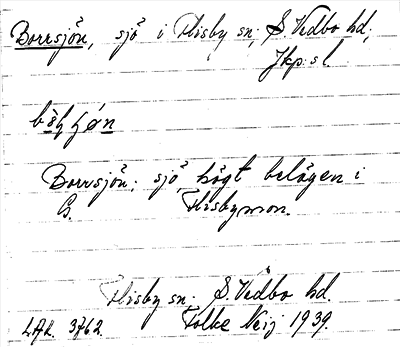 Borrsjön, sjö i Flisby sn; S. Vedbo hd;
Jkp:s l
Borrsjön; sjö, högt belägen i
B. Flisbymon.
Flisby sn; S. Vedbo hd.
LAL 3762. Folke Neij 1939.